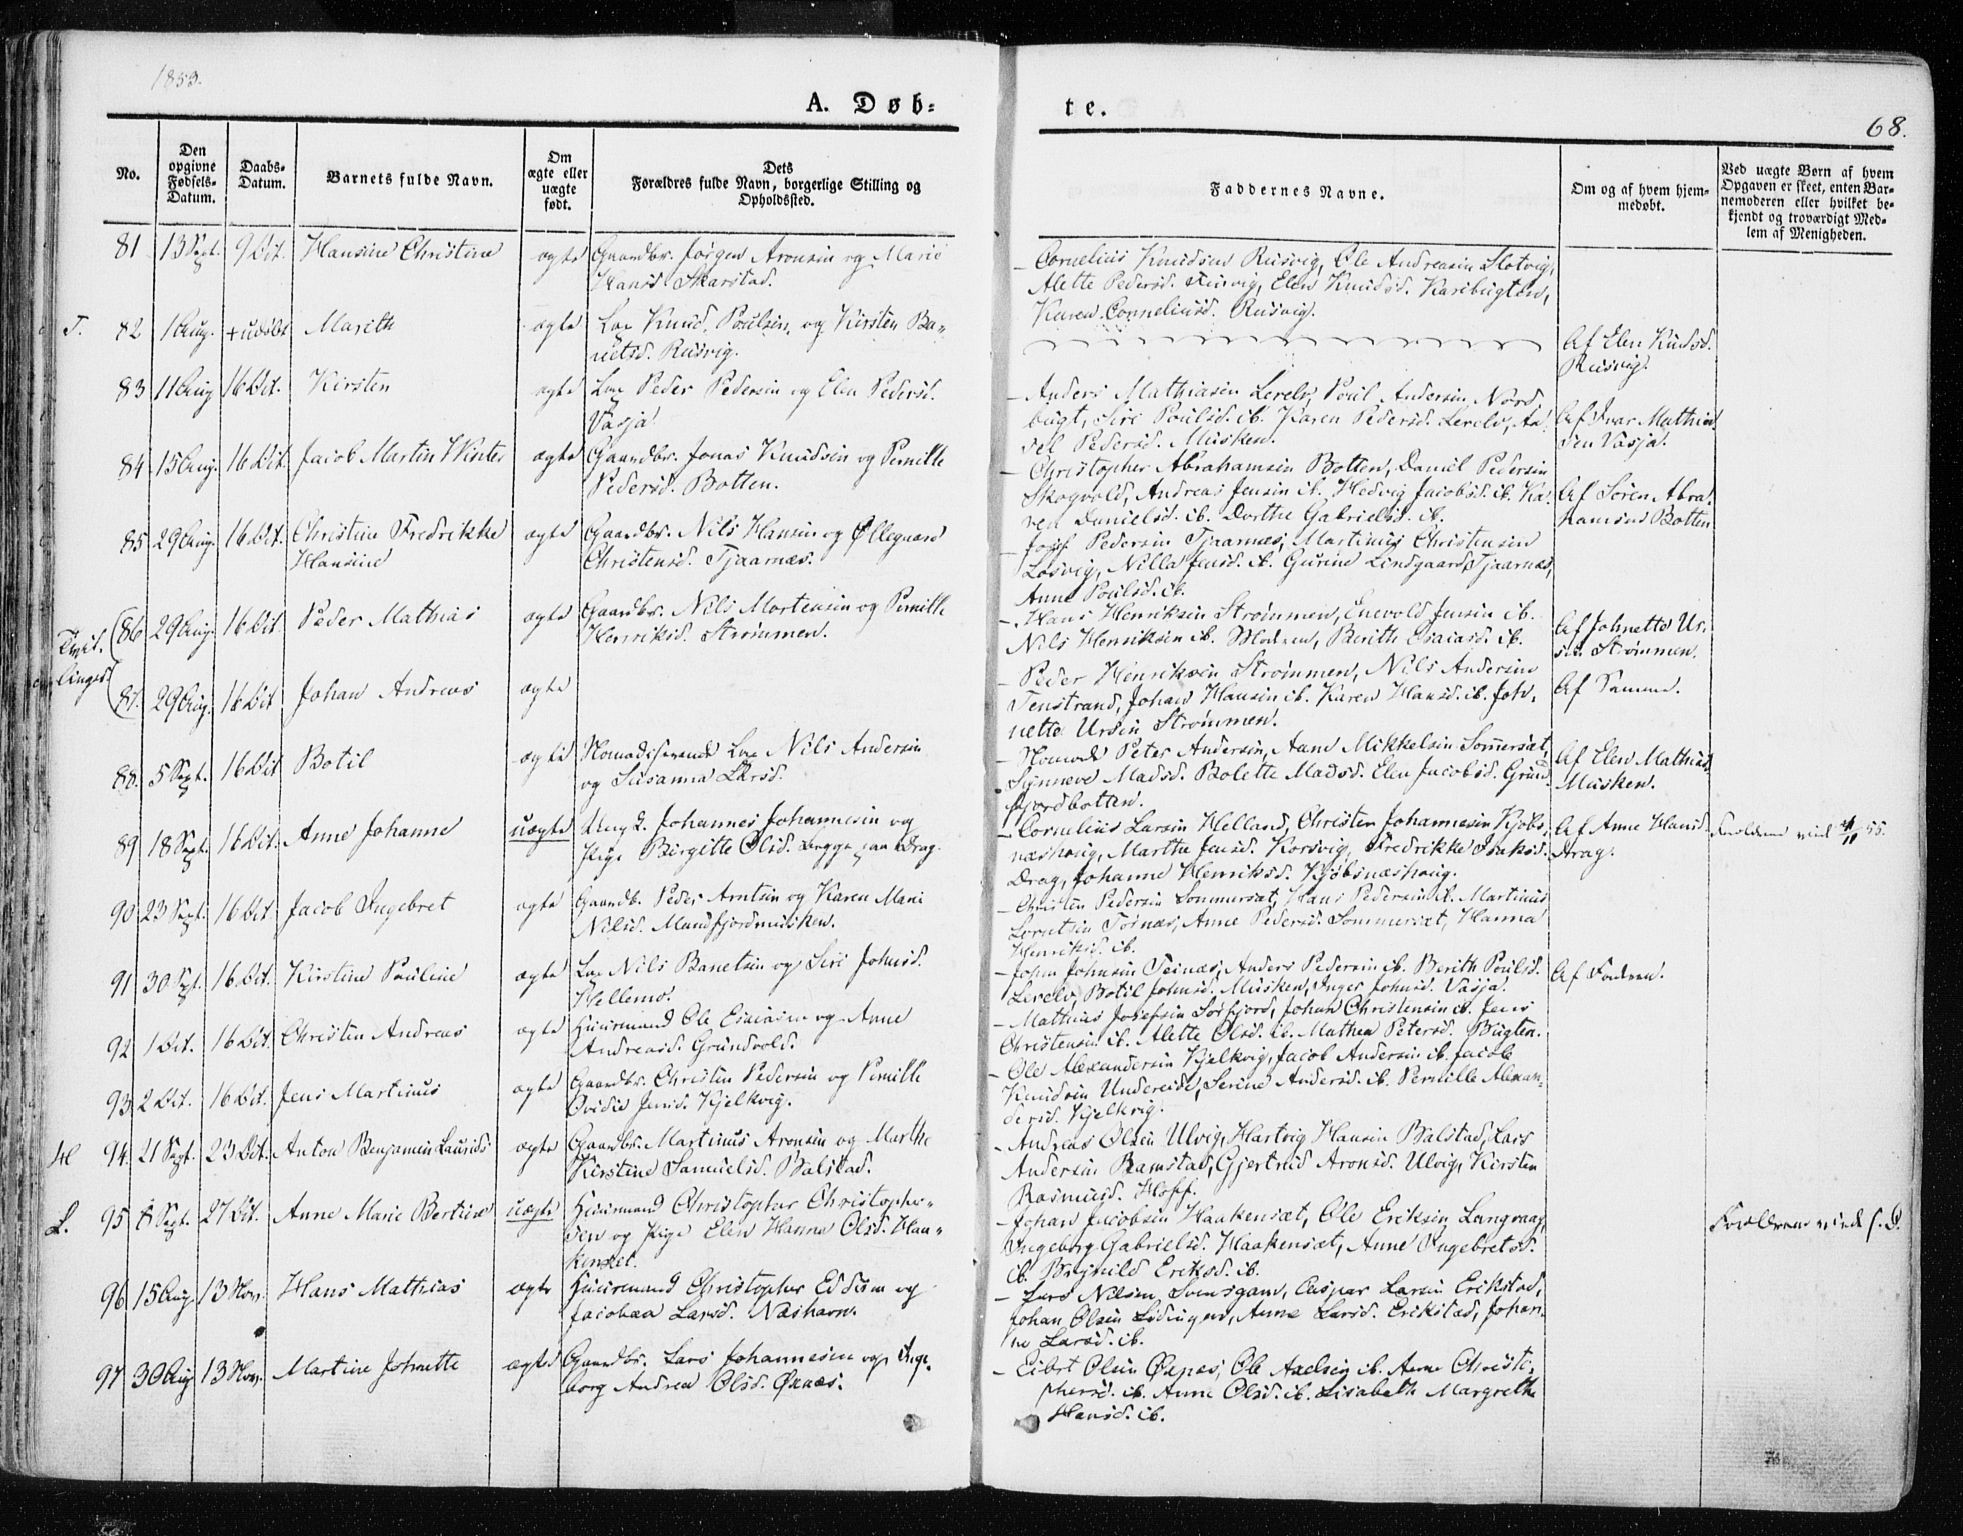 1853.
A. Døb=
te.
68.
No.
Den opgivne Fødsels-Datum.
Daabs-Datum.
Barnets fulde Navn.
Om ægte eller uægte født.
Dets Forældres fulde Navn, borgerlige Stilling og Opholdssted.
Faddernes Navne.
Om og af hvem hjemmedøbt.
Ved uægte Børn af hvem Opgaven er skeet, enten Barnemoderen eller hvilket bekjendt og troværdigt Medlem af Menigheden.
81 13 Sept. 9 Oct. Hansine Christine ægte Gaardbr. Jørgen Aronsen og Marie
Hansd. Skarstad.
Cornelius Knudsen Rusvig, Ole Andreasen Slotvig,
Alette Pedersd. Elen Knudsd. Karibugten,
Karen Corneliusd. Rusvig.
T. 82 1 Aug. + udøbt Marith ægte Lap Knud Poulsen og Kirsten Ba-
netsd. Rusvig.
Af Elen Knudsd.
Rusvig.
83 11 Aug 16 Oct. Kirsten ægte Lap Peder Pedersen og Elen Pedersd.
Vasja
Anders Mathiasen Lerelv, Poul Andersen Nord
bugt, Siri Poulsd. ib. Karen Pedersd. Lerelv,
Pedersd. Musken.
Af Ivar Mathia
sen Vasja.
84 15 Aug. 16 Oct. Jacob Martin Winter ægte Gaardbr. Jonas Knudsen og Pernille
Pedersd. Botten.
Christopher Abrahamsen Botten, Daniel Pedersen
Skogvold, Andreas Jensen ib. Hedvig Jacobsd. ib. Ka-
ren Danielsd. ib. Dorthe Gabrielsd. ib.
Af Søren Abra-
hamsen Botten
85 29 Aug. 16 Oct. Christine Fredrikke
Hansine ægte Gaardbr. Nils Hansen og Øllegaard
Christensd. Tjaarnæs.
Josef Pedersen Tjaarnæs, Martinus Christensen
Losvig, Nilla Jensd. ib. Gurine Lindgaard Tjaarnæs,
Anne Poulsd. ib.
Tvil-
linger
86 29 Aug. 16 Oct. Peder Mathias ægte Gaardbr. Nils Mortensen og Pernille
Henriksd. Strømmen.
Hans Henriksen Strømmen, Enevold Jensen ib.
Nils Henriksen ib. Moderen, Berith Esaiasd. ib.
Af Johnette Ur-
sin Strømmen.
87. 29 Aug. 16 Oct Johan Andreas ægte
Peder Henriksen Strømmen, Nils Andersen
Tenstrand, Johan Hansen ib. Karen Hansd. ib. Joh-
nette Ursin Strømmen.
Af Samme.
88. 5 Sept. 16 Oct Botil ægte Nomadiserende Lap Nils Andersen
og Susanna Larsd.
Nomade Peter Andersen, Mikkelsen Sommersæt,
Synneve Madsd. Bolette Madsd. Elen Jacobsd. Grund
fjordbotten.
Af Elen Mathiasd.
Musken.
89 18 Sept. 16 Oct. Anne Johanne uægte Ung K. Johannes Johannesen og
Pige Birgitte Olsd. begge paa Drag.
Cornelius Larsen Helland, Christen Johannesen Kjøbs-
næshaug, Marthe Jensd. Korsvig, Fredrikke Isaksd.
Drag, Johanne Henriksd. Kjøbsnæshaug.
Af Anne Hansd.
Drag.
Forældrene viede 55.
90 23 Sept. 16 Oct. Jacob Ingebret ægte Gaardb. Peder Arntsen og Karen Mari
Nilsd. Mandfjordmusken.
Christen Pedersen Sommersæt, Hans Pedersen ib. Martinus
Lorntsen Anne Pedersd. Sommersæt, Hanna
Henriksd. ib.
91 30 Sept. 16 Oct. Kirstine Pauline ægte Lap Nils Banetsen og Siri Johnsd.
Hellemo.
John Johnsen Anders Pedersen ib. Berith Poulsd.
Lerelv, Botil Johnsd. Musken, Inger Johnsd. Vasja.
Af Faderen.
92 1 Oct. 16 Oct. Christen Andreas ægte Huusmand Ole Esaiasen og Anne
Andreasd. Grundvold.
Mathias Josefsen Sørfjord, Johan Christensen ib. Jens
Christensen ib. Alette Olsd. ib. Mathea Petersd. Bugten.
93 2 Oct. 16 Oct. Jens Martinus ægte Gaardbr. Christen Pedersen og Pernille
Ovidia Jensd. Kjelkvig.
Ole Alexandersen Kjelkvig, Jacob Andersen ib. Jacob
Knudsen Undereide, Serine Andersd. ib. Pernille Alexan-
dersd. Kjelkvig.
94. 21 Sept. 23 Oct. Anton Benjamin Laurids ægte Gaardbr. Martinus Aronsen og Marthe
Kirstine Samuelsd. Balstad.
Andreas Olsen Ulvig, Hartvig Hansen Balstad, Lars
Andersen Ramstad, Gjertrud Aronsd. Ulvig, Kirsten
Rasmusd. Hoff.
L. 95 8 Sept. 27 Oct. Anne Marie Bertine uægte Huusmand Christopher Christopher-
sen og Pige Elen Hanna Olsd. Haa-
kenset.
Johan Jacobsen Haakensæt, Ole Eriksen Langvaag,
Ingeborg Gabrielsd. Haakensæt, Anne Ingebretsd.
ib. Brynild Eriksd. ib.
Forældrene viede s. D.
96 15 Aug 13 Nov. Hans Mathias ægte Huusmand Christopher Eddisen og
Jacobea Larsd. Næshavn.
Lars Nilsen Svensgam, Caspar Larsen Erikstad,
Johan Olsen Lødingen, Anne Larsd. Erikstad, Johan-
ne Larsd. ib.
97 30 Aug 13 Nov. Martine Johnette ægte Gaardbr. Lars Johannesen og Inge-
borg Andrea Olsd. Øxnæs.
Eibert Olsen Øxnæs, Ole Axelsen ib. Anne Christo-
phersd. ib. Anne Olsd. ib. Lisabeth Margrethe
Hansd. ib.